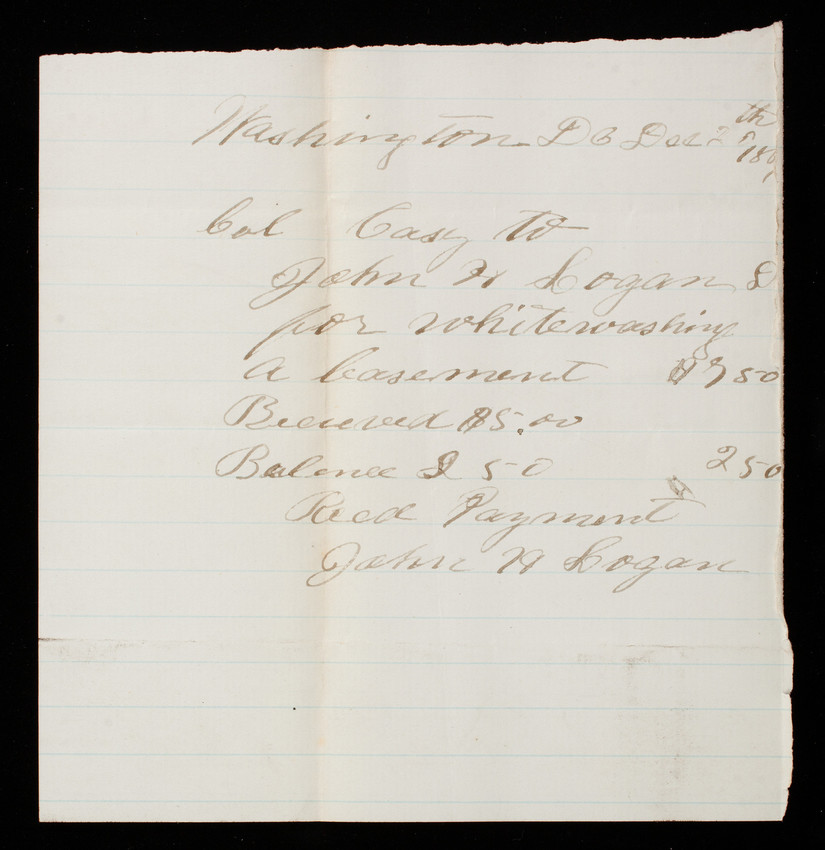 Washington DC Dec 2th 18
Col Casy to
John H Logan D
for whitewashing
a basement $7 50
Received $5.00
Balence 2 50 2 50
Recd Payment
John H Logan